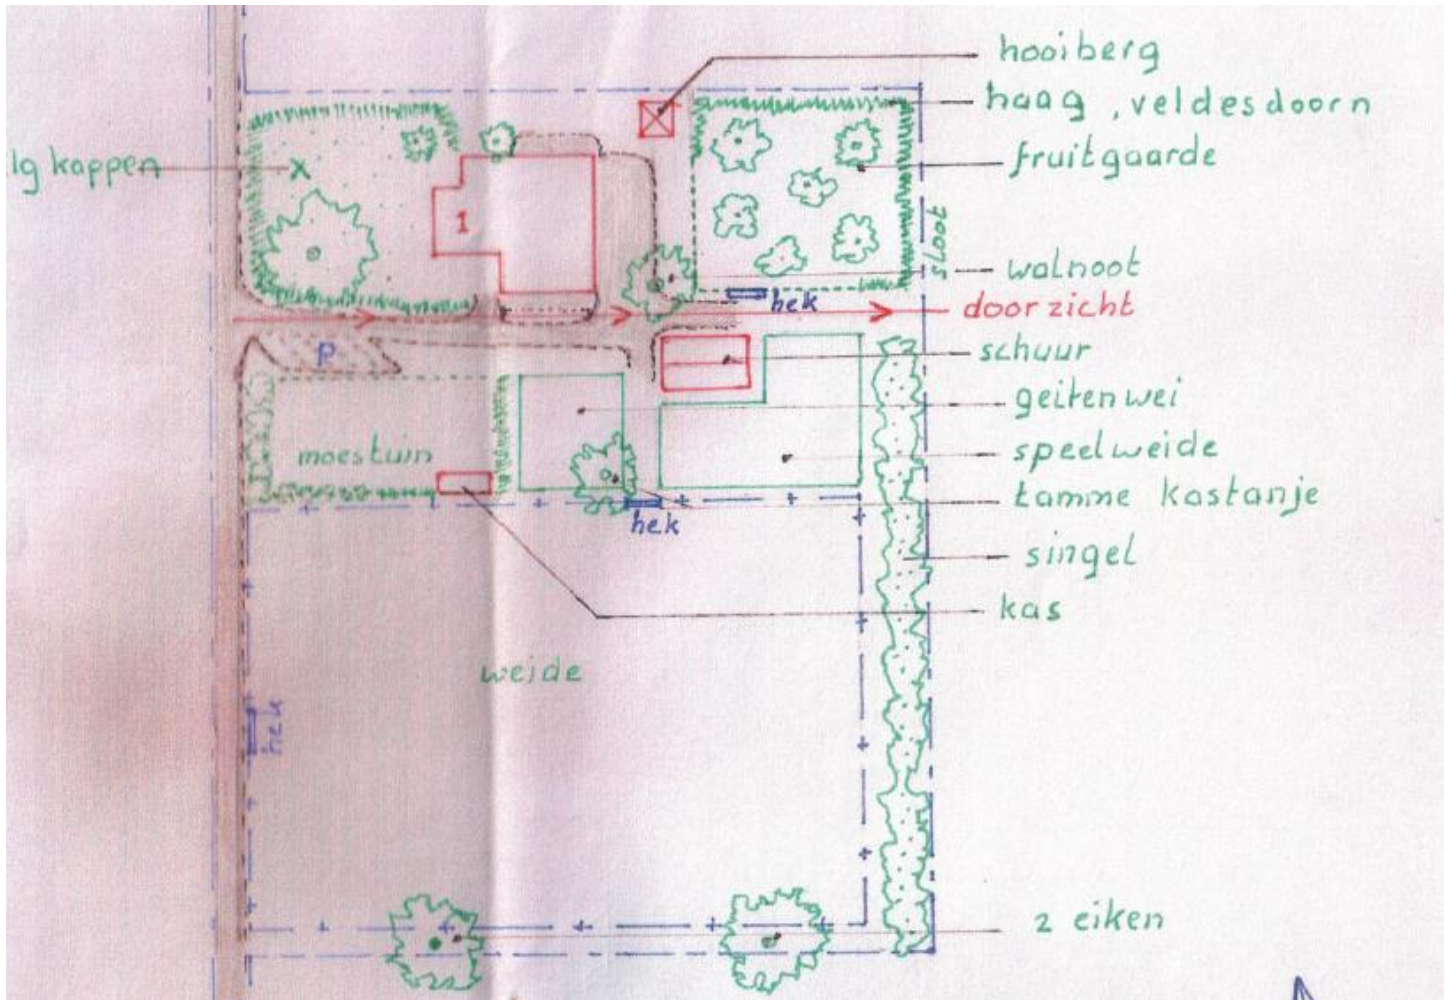 hooiberg
haag, veldesdoorn
lg kappen
fruitgaarde
1
walnoot
hek
doorzicht
P
schuur
geitenwei
moestuin
speelweide
tamme kastanje
hek
singel
kas
weide
hek
2 eiken